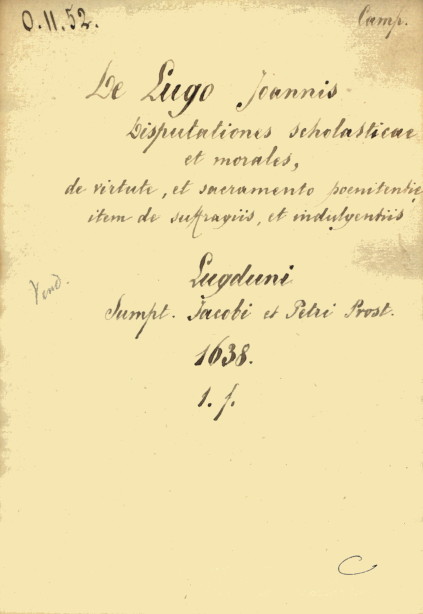 O.II.52.
Camp.
De Lugo Joannis
Disputationes scholasticae
et morales,
de virtute, et sacramento poenitentie
item de suffragiis, et indulgentiis
Lugduni
Sumpt. Jacobi et Petri Prost.
1638.
1. f.
C